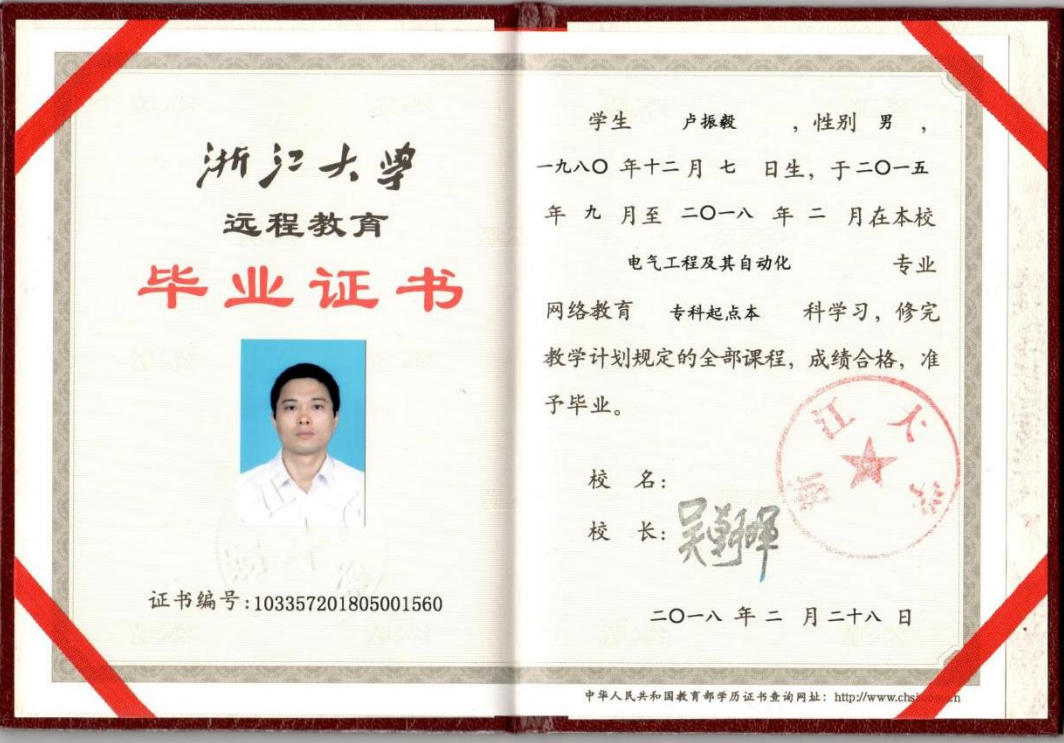 浙江大学
远程教育
毕业证书
证书编号:103357201805001560
学生 卢振毅 ，性别 男 ，
一九八〇 年十二月 七 日生，于二〇一五
年 九 月至 二〇一八 年 二 月在本校
电气工程及其自动化 专业
网络教育 专科起点本 科学习，修完
教学计划规定的全部课程，成绩合格，准
予毕业。
浙江大学
校 名：
校 长：吴朝晖
二〇一八 年 二 月二十八 日
中华人民共和国教育部学历证书查询网址：http://www.chsi.com.cn